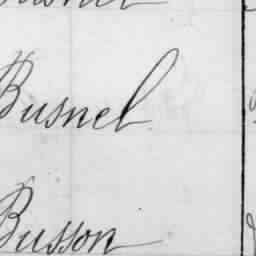 Busnel
Busson